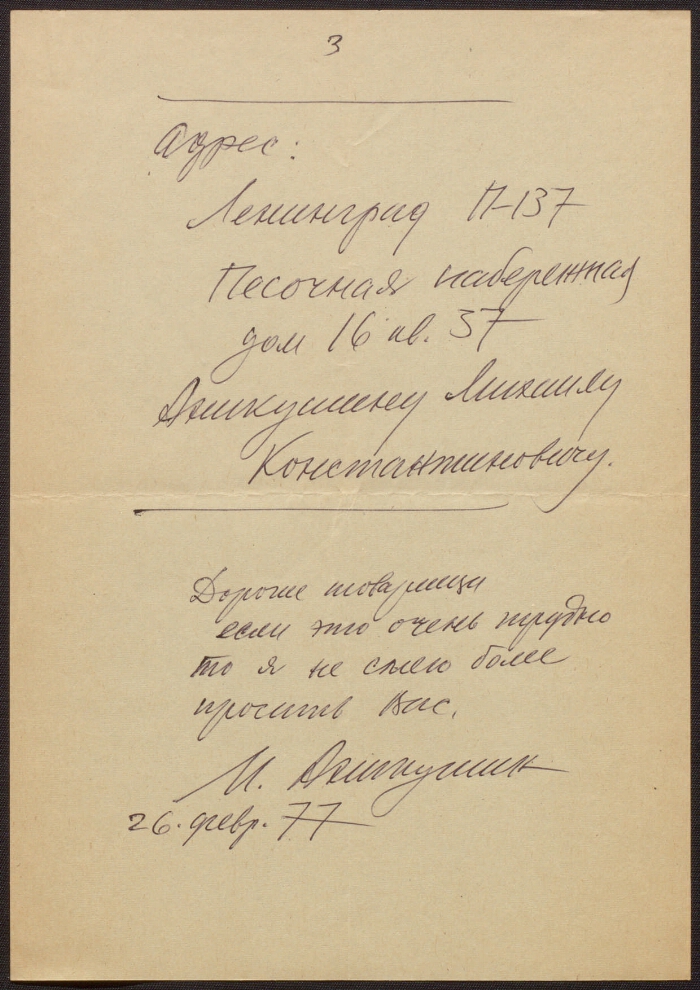 3
Адрес:
Ленинград П-137
Песочная набережная
дом 16 кв. 37
Аникушину Михаилу
Константиновичу.
Дорогие товарищи
если это очень трудно
то я не смею более
просить Вас.
М. Аникушин
26. февр. 77